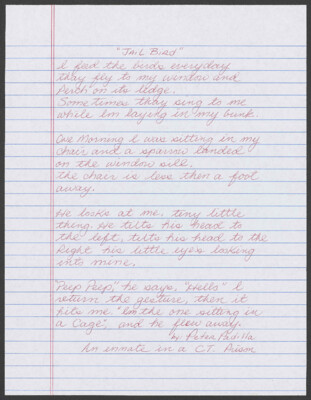 "JAIL BIRD"
I feed the birds everyday
they fly to my window and
Perch on its ledge.
Sometimes they sing to me
while I'm laying in my bunk.
One Morning I was sitting in my
chair and a sparrow landed
on the window sill.
the chair is less then a foot
away.
He looks at me, tiny little
thing. He tilts his head to
the left, tilts his head to the
Right his little eyes looking
into mine.
"Peep Peep," he says, "Hello" I
return the gesture, then it
hits me "I'm the one sitting in
a Cage", and he flew away.
by Peter Padilla
An inmate in a C.T. Prison